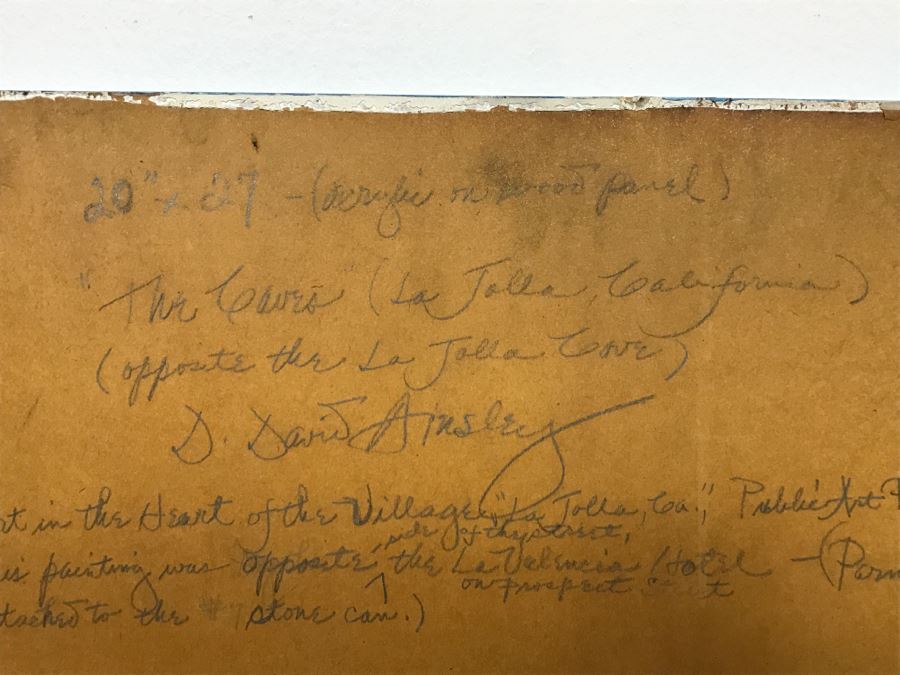 20" x 27 - (acrylic on wood panel)
"The Caves" (La Jolla, California)
(opposite the La Jolla Cove)
D. David Ainsley
in the Heart of the Village, "La Jolla, Ca.", Public Art
side of the street,
painting was opposite the La Valencia Hotel - (
on Prospect Street
to the #7 stone can.)